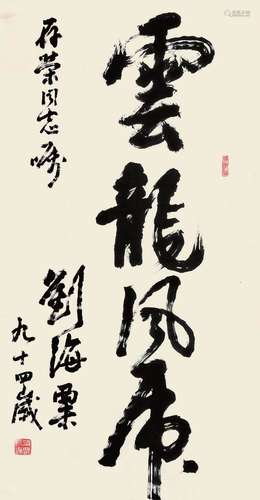 雲龍風虎
存榮同志嘱
劉海粟
九十四歲